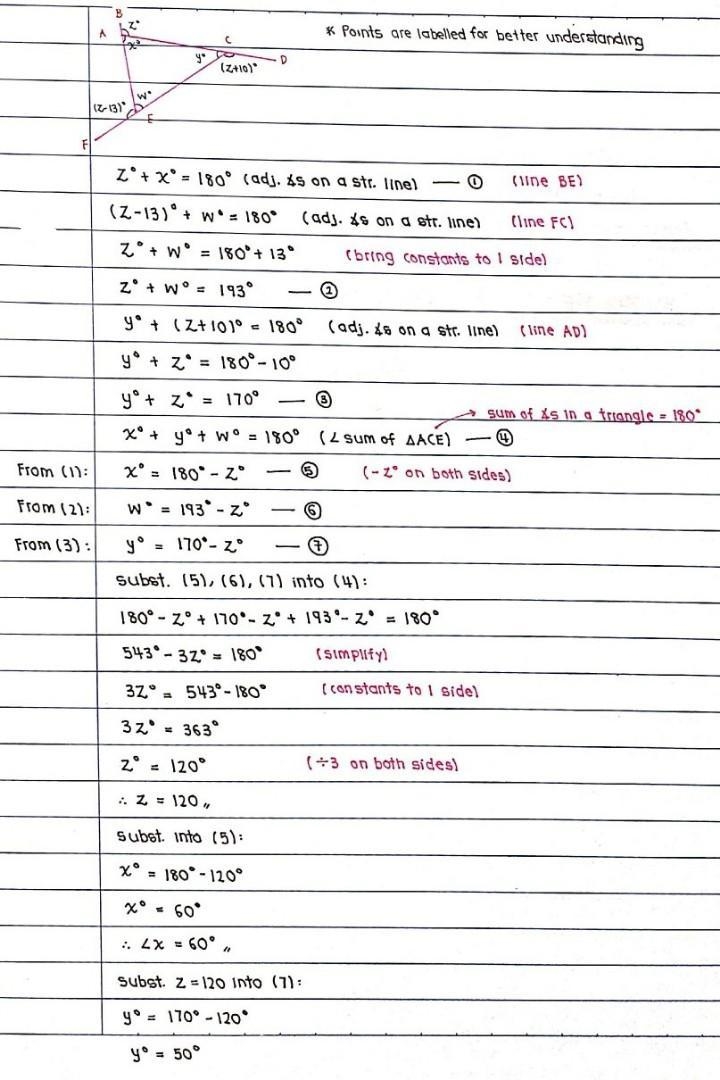 B
A z°
x° C
* Points are labelled for better understanding
y° D
(z+10)°
w°
(z-13)°
E
F
z° + x° = 180° (adj. ∠s on a str. line) — ① (line BE)
(z-13)° + w° = 180° (adj. ∠s on a str. line) (line FC)
z° + w° = 180° + 13° (bring constants to 1 side)
z° + w° = 193° — ②
y° + (z+10)° = 180° (adj. ∠s on a str. line) (line AD)
y° + z° = 180° - 10°
y° + z° = 170° — ③
→ sum of ∠s in a triangle = 180°
x° + y° + w° = 180° (∠ sum of △ACE) — ④
From (1): x° = 180° - z° — ⑤ (-z° on both sides)
From (2): w° = 193° - z° — ⑥
From (3): y° = 170° - z° — ⑦
subst. (5), (6), (7) into (4):
180° - z° + 170° - z° + 193° - z° = 180°
543° - 3z° = 180° (simplify)
3z° = 543° - 180° (constants to 1 side)
3z° = 363°
z° = 120° (÷3 on both sides)
∴ z = 120 ,,
subst. into (5):
x° = 180° - 120°
x° = 60°
∴ ∠x = 60° ,,
subst. z = 120 into (7):
y° = 170° - 120°
y° = 50°